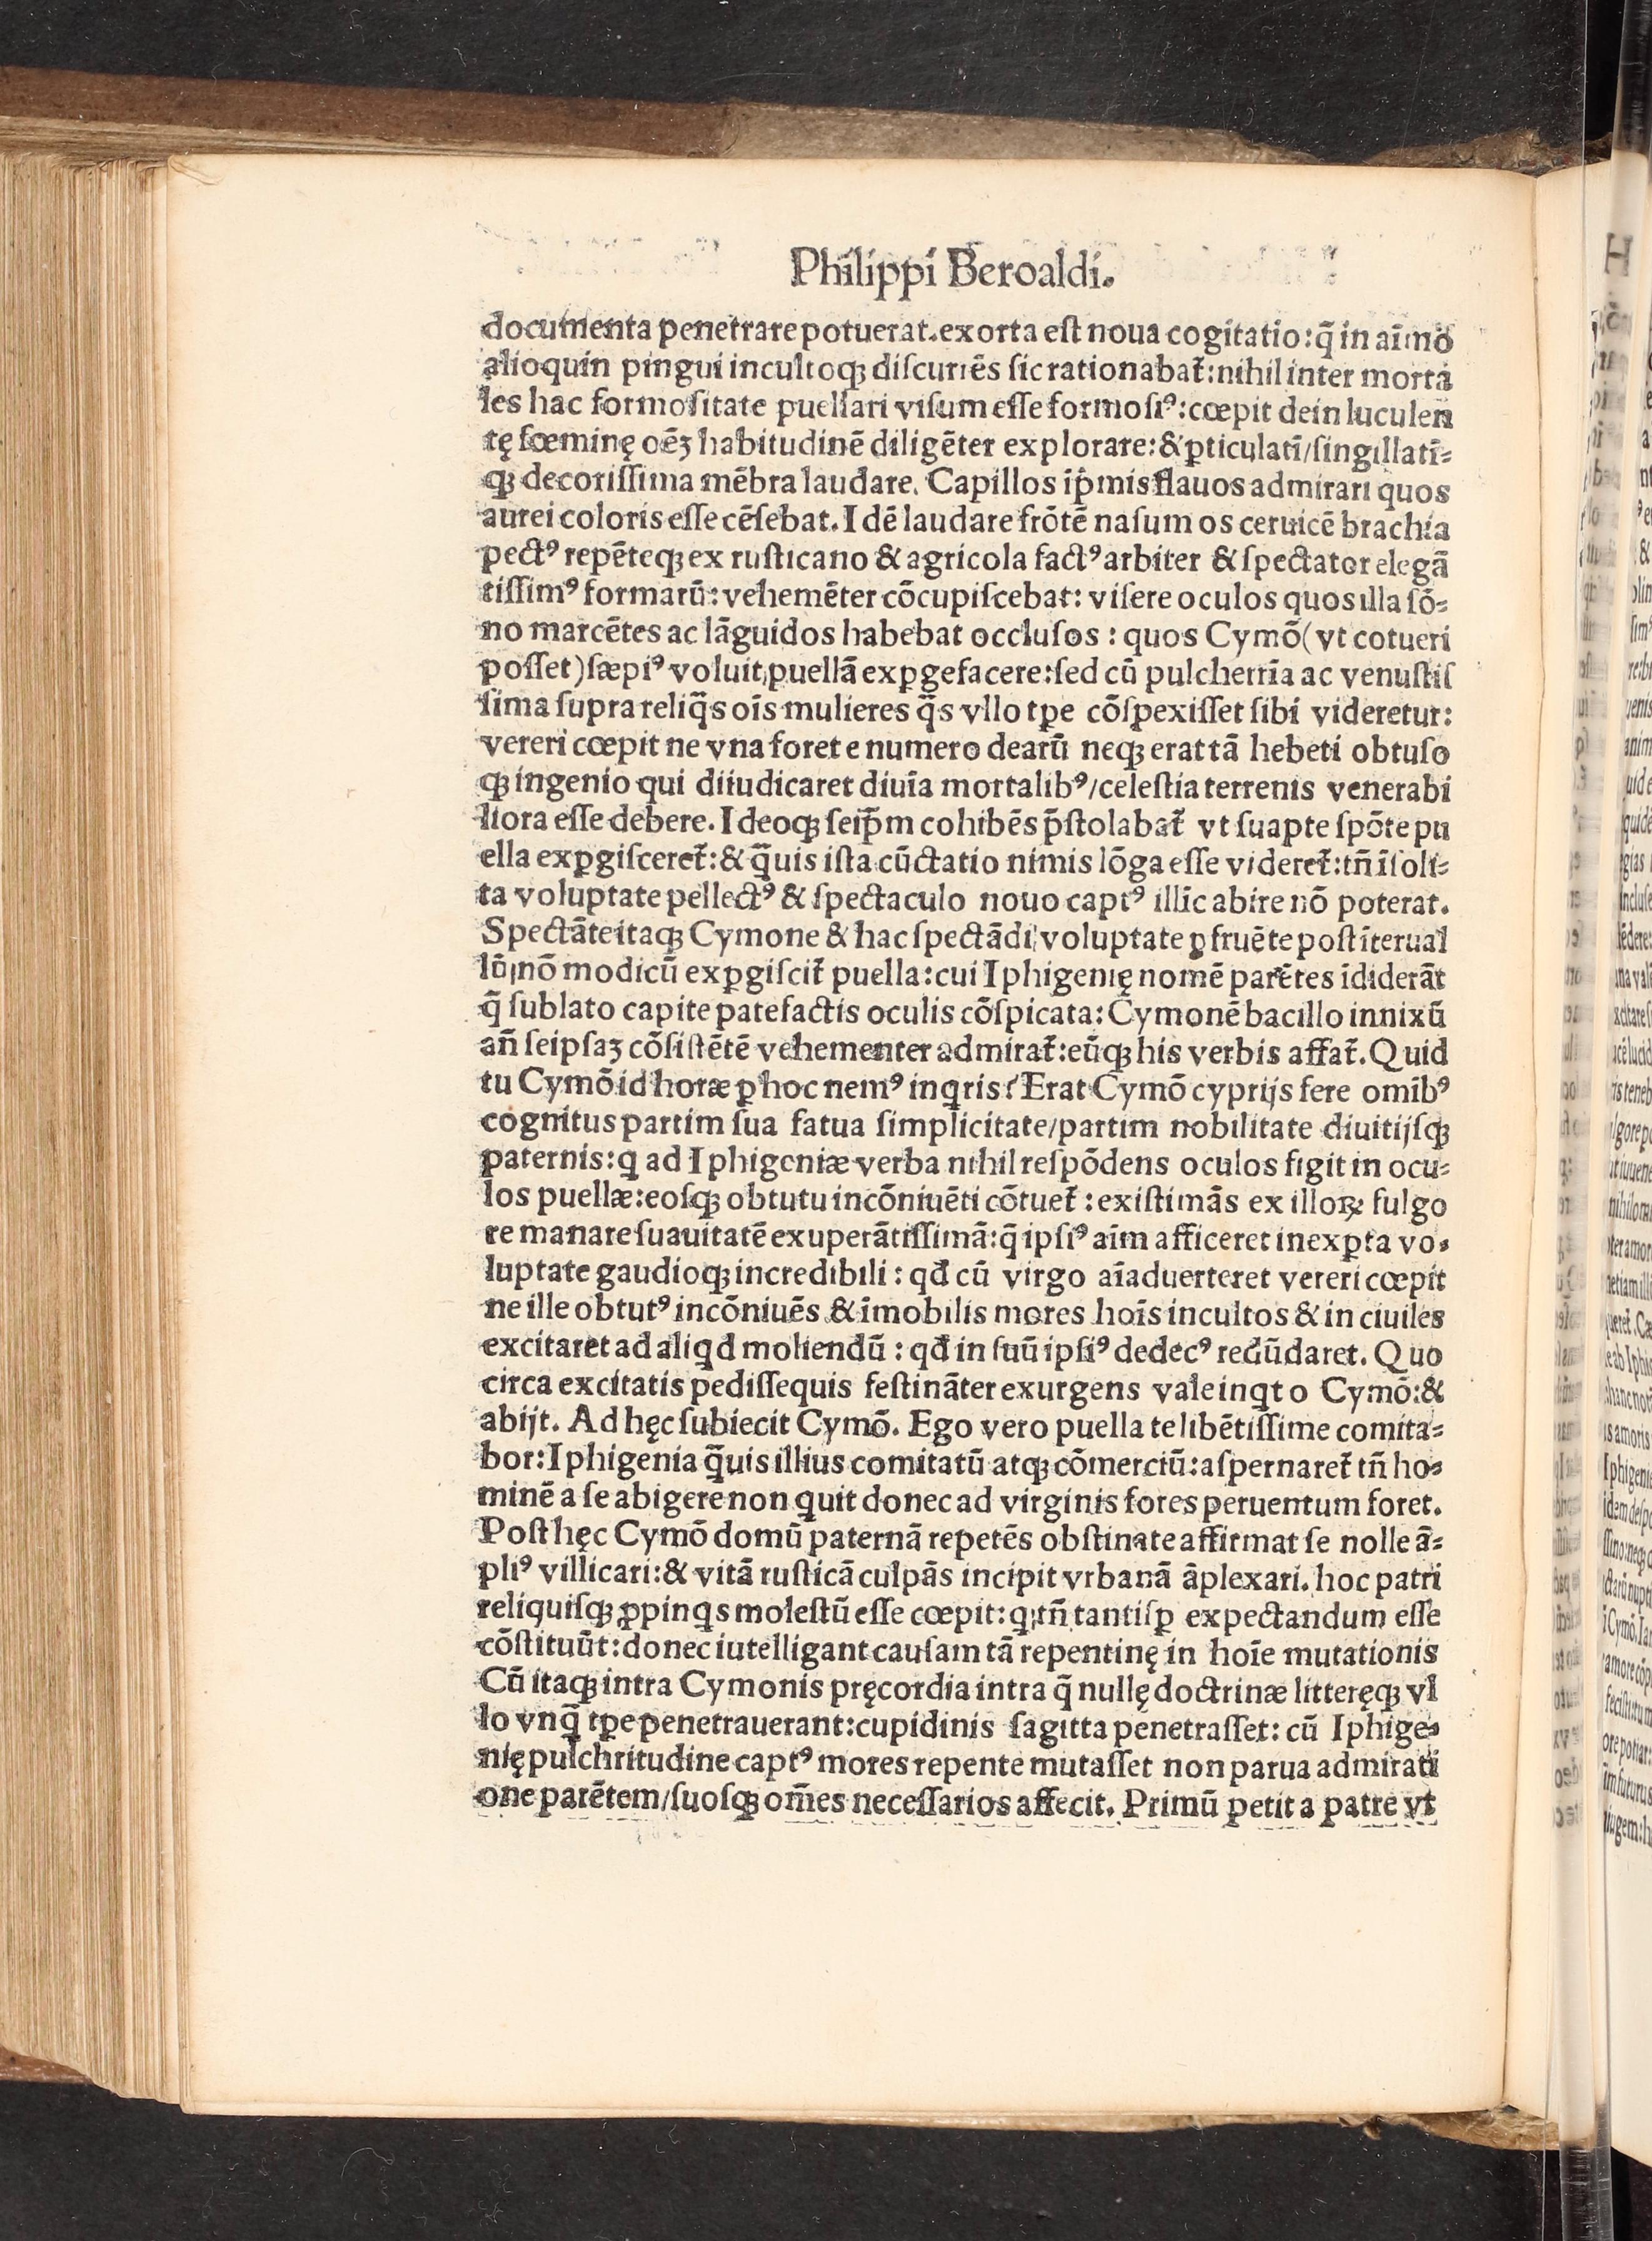 Philippi Beroaldi.
documenta penetrare potuerat. exorta eſt noua cogitatio: q̄ in aīmo
alioquin pingui incultoqꝫ diſcurrēs ſic rationabat̄: nihil inter morta
les hac formoſitate puellari viſum eſſe formoſiꝰ: cœpit dein luculen
tę fœminę oēꝫ habitudinē diligēter explorare: & ꝑticulatī/ſingillatī⸗
qꝫ decoriſſima mēbra laudare. Capillos īpͥmis flauos admirari quos
aurei coloris eſſe cēſebat. I dē laudare frōtē naſum os ceruicē brachia
pectꝰ repēteqꝫ ex ruſticano & agricola factꝰ arbiter & ſpectator elegā
tiſſimꝰ formarū: vehemēter cōcupiſcebat: viſere oculos quos illa ſō⸗
no marcētes ac lāguidos habebat occluſos : quos Cymō (vt cotueri
poſſet) ſæpiꝰ voluit puellā exꝑgefacere: ſed cū pulcherrīa ac venuſtiſ
ſima ſupra reliq̄s oīs mulieres q̄s vllo tꝑe cōſpexiſſet ſibi videretur:
vereri cœpit ne vna foret e numero dearū neqꝫ erat tā hebeti obtuſo
qꝫ ingenio qui diiudicaret diuīa mortalibꝰ/celeſtia terrenis venerabi
liora eſſe debere. I deoqꝫ ſeip̄m cohibēs p̄ſtolabat̄ vt ſuapte ſpōte pu
ella exꝑgiſceret̄: & q̄uis iſta cūctatio nimis lōga eſſe videret̄: tñ īſoli⸗
ta voluptate pellectꝰ & ſpectaculo nouo captꝰ illīc abire nō poterat.
Spectāte itaqꝫ Cymone & hac ſpectādi voluptate ꝑfruēte poſt īterual
lū nō modicū exꝑgiſcit̄ puella: cui I phigenię nomē parētes īdiderāt
q̄ ſublato capite patefactis oculis cōſpicata: Cymonē bacillo innixū
añ ſeipſaꝫ cōſiſtētē vehementer admirat̄: eūqꝫ his verbis affat̄. Quid
tu Cymō id horæ ꝑ hoc nemꝰ inqͥris? Erat Cymō cyprijs fere omībꝰ
cognitus partim ſua fatua ſimplicitate/partim nobilitate diuitijſqꝫ
paternis: qͥ ad I phigeniæ verba nihil reſpōdens oculos figit in ocu⸗
los puellæ: eoſqꝫ obtutu incōniuēti cōtuet̄ : exiſtimās ex illoꝝ fulgo
re manare ſuauitatē exuperātiſſimā: q̄ ipſiꝰ aīm afficeret inexꝑta vo⸗
luptate gaudioqꝫ incredibili : qđ cū virgo aīaduerteret vereri cœpit
ne ille obtutꝰ incōniuēs & īmobilis mores hoīs incultos & in ciuiles
excitaret ad aliqͥd moliendū : qđ in ſuū ipſiꝰ dedecꝰ redūdaret. Quo
circa excitatis pediſſequis feſtināter exurgens vale inqͥt o Cymō: &
abijt. Ad hęc ſubiecit Cymō. Ego vero puella te libētiſſime comita⸗
bor: I phigenia q̄uis illius comitatū atqꝫ cōmerciū: aſpernaret̄ tñ ho⸗
minē a ſe abigere non quit donec ad virginis fores peruentum foret.
Poſt hęc Cymō domū paternā repetēs obſtinate affirmat ſe nolle ā⸗
pliꝰ villicari: & vitā ruſticā culpās incipit vrbanā āplexari. hoc patri
reliquiſqꝫ ꝓpinqͥs moleſtū eſſe cœpit: qͥ tñ tantiſꝑ expectandum eſſe
cōſtituūt: donec iutelligant cauſam tā repentinę in hoīe mutationis
Cū itaqꝫ intra Cymonis pręcordia intra q̄ nullę doctrinæ litteręqꝫ vl
lo vnq̄ tꝑe penetrauerant: cupidinis ſagitta penetraſſet: cū Iphige⸗
nię pulchritudine captꝰ mores repente mutaſſet non parua admirati
one parētem/ſuoſqꝫ om̄es neceſſarios affecit. Primū petit a patre vt